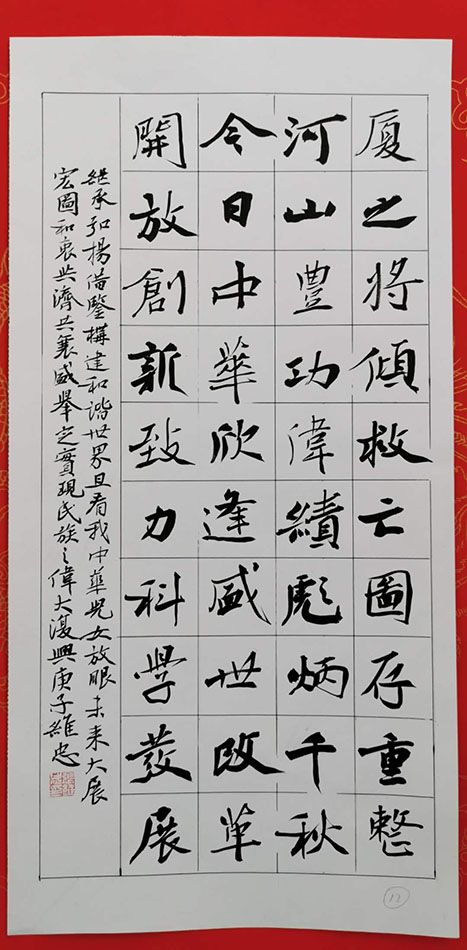 厦之將傾救亡圖存重整
河山豐功偉績彪炳千秋
今日中華欣逢盛世改革
開放創新致力科學發展
継承弘揚借鑒構建和谐世界且看我中華兒女放眼未来大展
宏圖和衷共濟共襄盛舉定實現民族之偉大復興庚子維忠
12